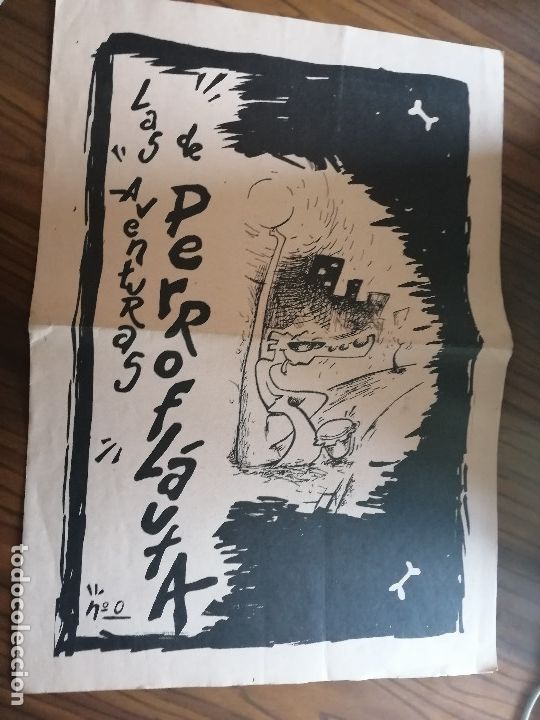 Las Aventuras
de
Perrofláuta
nº 0
todocoleccion.net